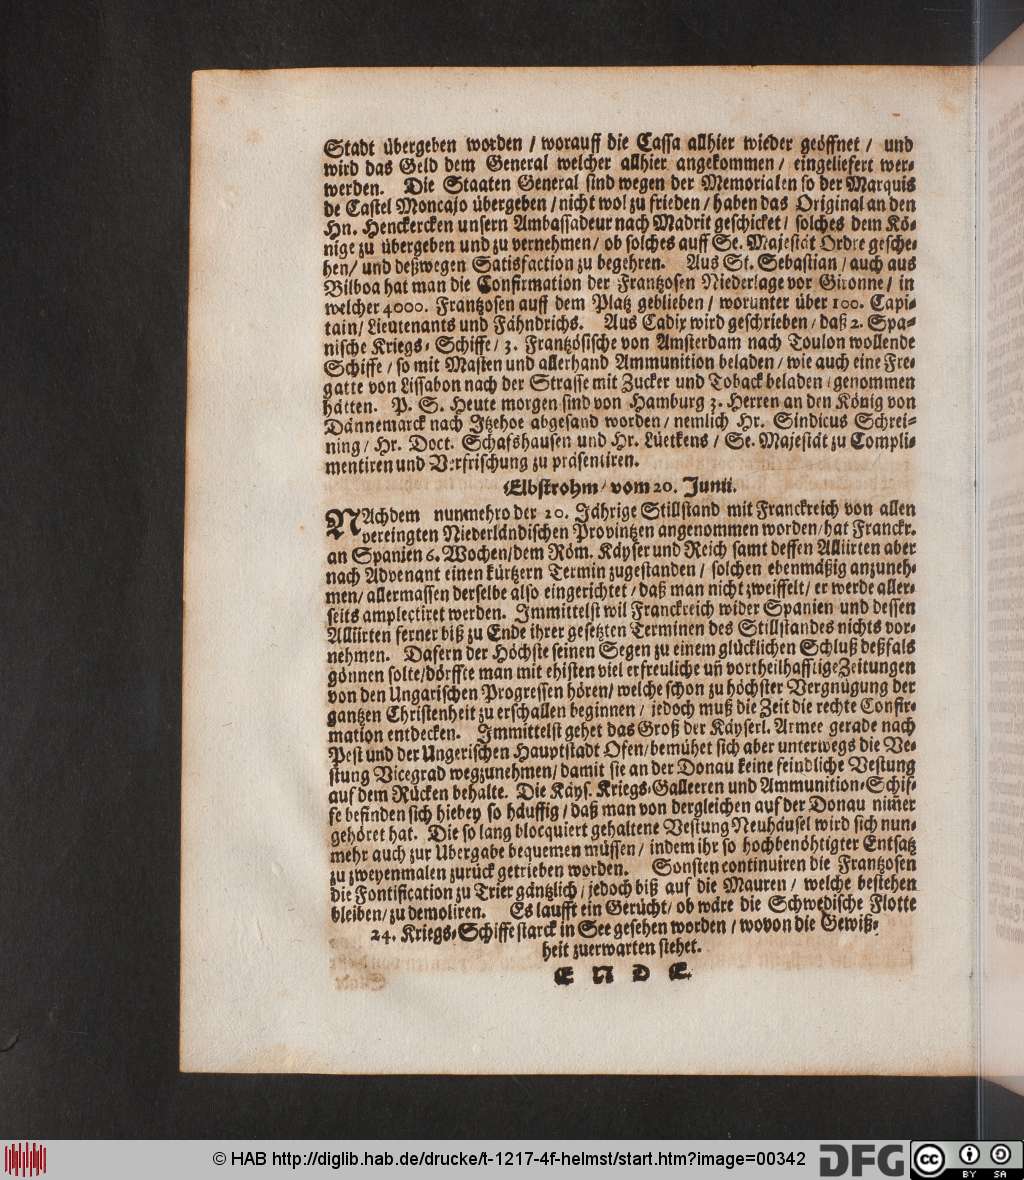 Stadt übergeben worden / worauff die Cassa allhier wieder geöffnet / und
wird das Geld dem General welcher allhier angekommen / eingeliefert wer-
werden. Die Staaten General sind wegen der Memorialen so der Marquis
de Castel Moncajo übergeben / nicht wol zu frieden / haben das Original an den
Hn. Henckercken unsern Ambassadeur nach Madrit geschicket / solches dem Kö-
nige zu übergeben und zu vernehmen / ob solches auff Se. Majestät Ordre gesche-
hen / und deßwegen Satisfaction zu begehren. Aus St. Sebastian / auch aus
Bilboa hat man die Confirmation der Frantzosen Niederlage vor Gironne / in
welcher 4000. Frantzosen auff dem Platz geblieben / worunter über 100. Capi-
tain / Lieutenants und Fähndrichs. Aus Cadix wird geschrieben / daß 2. Spa-
nische Kriegs-Schiffe / 3. Frantzösische von Amsterdam nach Toulon wollende
Schiffe / so mit Masten und allerhand Ammunition beladen / wie auch eine Fre-
gatte von Lissabon nach der Strasse mit Zucker und Toback beladen / genommen
hätten. P. S. Heute morgen sind von Hamburg 3. Herren an den König von
Dännemarck nach Itzehoe abgesand worden / nemlich Hr. Sindicus Schrei-
ning / Hr. Doct. Schafshausen und Hr. Lüetkens / Se. Majestät zu Compli-
mentiren und Verfrischung zu präsentiren.
Elbstrohm / vom 20. Junii.
NAchdem nunmehro der 20. Jährige Stillstand mit Franckreich von allen
vereingten Niederländischen Provintzen angenommen worden / hat Franckr.
an Spanien 6. Wochen / dem Röm. Käyser und Reich samt dessen Alliirten aber
nach Advenant einen kürtzern Termin zugestanden / solchen ebenmäßig anzuneh-
men / allermassen derselbe also eingerichtet / daß man nicht zweiffelt / er werde aller-
seits amplectiret werden. Immittelst wil Franckreich wider Spanien und dessen
Alliirten ferner biß zu Ende ihrer gesetzten Terminen des Stillstandes nichts vor-
nehmen. Dafern der Höchste seinen Segen zu einem glücklichen Schluß deßfals
gönnen solte / dörffte man mit ehisten viel erfreuliche uñ vortheilhafftige Zeitungen
von den Ungarischen Progressen hören / welche schon zu höchster Vergnügung der
gantzen Christenheit zu erschallen beginnen / jedoch muß die Zeit die rechte Confir-
mation entdecken. Immittelst gehet das Groß der Käyserl. Armee gerade nach
Pest und der Ungerischen Hauptstadt Ofen / bemühet sich aber unterwegs die Ve-
stung Vicegrad wegzunehmen / damit sie an der Donau keine feindliche Vestung
auf dem Rücken behalte. Die Käys. Kriegs-Galleeren und Ammunition-Schif-
fe befinden sich hiebey so häuffig / daß man von dergleichen auf der Donau nim̃er
gehöret hat. Die so lang blocquiert gehaltene Vestung Neuhäusel wird sich nun-
mehr auch zur Ubergabe bequemen müssen / indem ihr so hochbenöhtigter Entsatz
zu zweyenmalen zurück getrieben worden. Sonsten continuiren die Frantzosen
die Fontification zu Trier gäntzlich / jedoch biß auf die Mauren / welche bestehen
bleiben / zu demoliren. Es laufft ein Gerücht / ob wäre die Schwedische Flotte
24. Kriegs-Schiffe starck in See gesehen worden / wovon die Gewiß-
heit zuerwarten stehet.
E N D E.
© HAB http://diglib.hab.de/drucke/t-1217-4f-helmst/start.htm?image=00342
DFG
cc BY SA